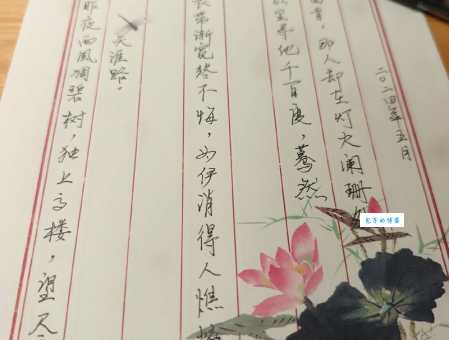 昨夜西風凋碧树，独上高楼，望尽
天涯路。
带渐宽终不悔，为伊消得人憔
里寻他千百度，蓦然
回首，那人却在灯火阑珊
二〇二四年五月